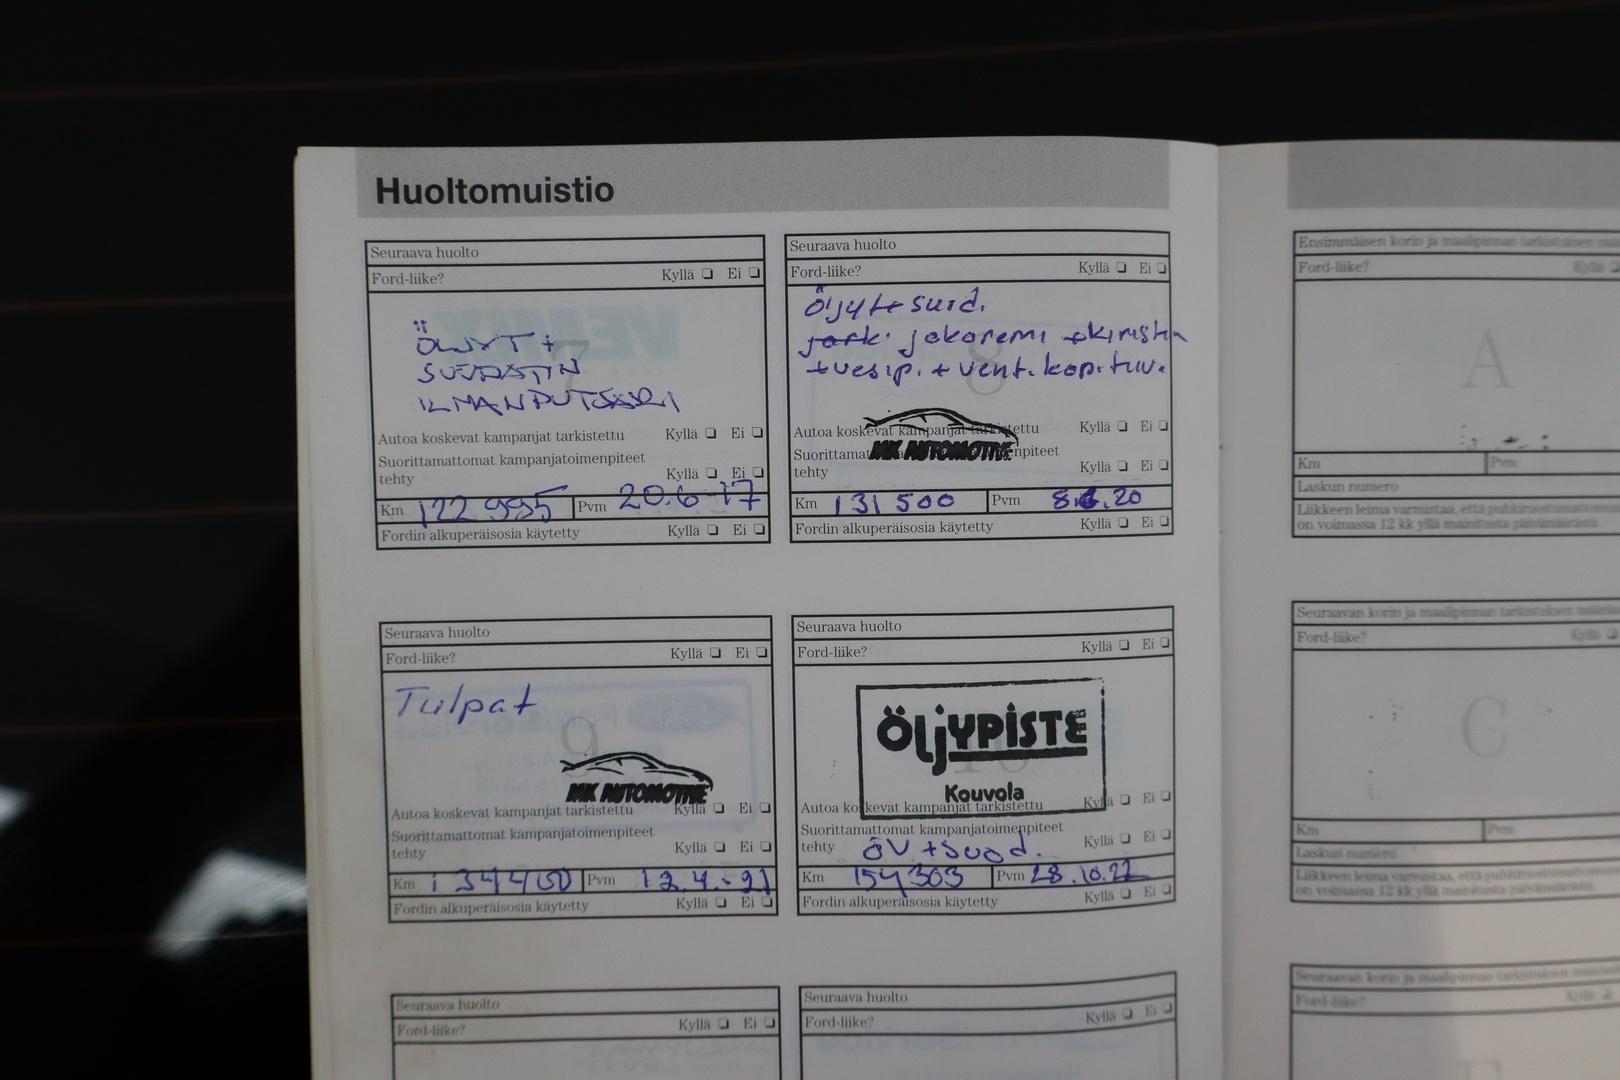 Huoltomuistio
Seuraava huolto
Ford-liike? Kyllä Ei
7
ÖLJYT +
SUODATIN
ILMANPUTSARI
Autoa koskevat kampanjat tarkistettu Kyllä Ei
Suorittamattomat kampanjatoimenpiteet
tehty Kyllä Ei
Km 122 995 Pvm 20.6-17
Fordin alkuperäisosia käytetty Kyllä Ei
Seuraava huolto
Ford-liike? Kyllä Ei
8
Öljyt+suod.
jakoremi +kiristin
+vesip. + vent. kop. tiiv.
MK AUTOMOTIVE
Autoa koskevat kampanjat tarkistettu Kyllä Ei
Suorittamattomat kampanjatoimenpiteet
tehty Kyllä Ei
Km 131 500 Pvm 20
Fordin alkuperäisosia käytetty Kyllä Ei
Seuraava huolto
Ford-liike? Kyllä Ei
9
Tulpat
MK AUTOMOTIVE
Autoa koskevat kampanjat tarkistettu Kyllä Ei
Suorittamattomat kampanjatoimenpiteet
tehty Kyllä Ei
Km 134400 Pvm 12.4.-21
Fordin alkuperäisosia käytetty Kyllä Ei
Seuraava huolto
Ford-liike? Kyllä Ei
10
ÖLJYPISTE
Kouvola
Autoa koskevat kampanjat tarkistettu Kyllä Ei
Suorittamattomat kampanjatoimenpiteet
tehty ÖV +suod. Kyllä Ei
Km 154303 Pvm 28.10.22
Fordin alkuperäisosia käytetty Kyllä Ei
Seuraava huolto
Ford-liike? Kyllä Ei
Seuraava huolto
Ford-liike? Kyllä Ei
Ensimmäisen korin ja maalipinnan tarkistuksen
Ford-liike? Kyllä
A
Km Pvm
Laskun numero
Liikkeen leima varmistaa, että
on voimassa 12 kk yllä mainitusta päivämäärästä.
Seuraavan korin ja maalipinnan tarkistuksen
Ford-liike? Kyllä
C
Km Pvm
Laskun numero
Liikkeen leima varmistaa, että
on voimassa 12 kk yllä mainitusta päivämäärästä.
Seuraavan korin ja maalipinnan tarkistuksen
Ford-liike? Kyllä